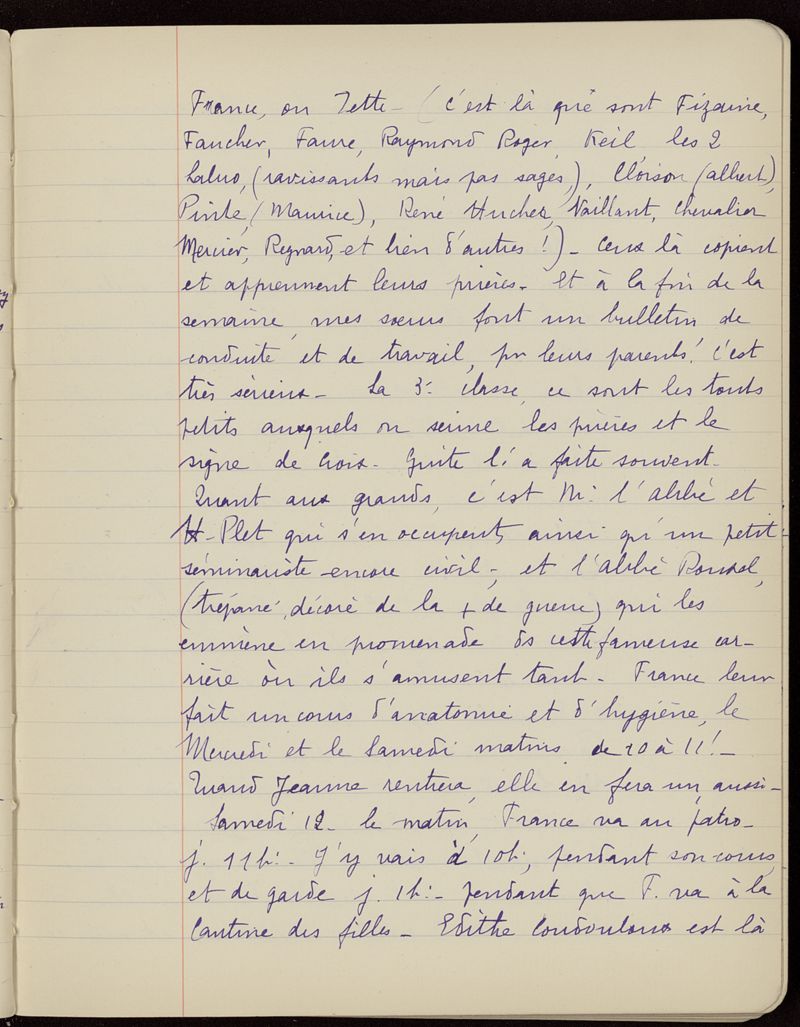 France, ou Tette - (c'est là que sont Fizaine,
Faucher, Faure, Raymond Roger, Keil les 2
(ravissants mais pas sages,), Cloison (albert),
Pinte, (Maurice), René Hucher, Vaillant, Chevalier
Mercier, Regnard, et bien d'autres !) - Ceux là copient
et apprennent leurs prières - Et à la fin de la
semaine, mes sœurs font un bulletin de
conduite et de travail, pr leurs parents! C'est
très sérieux - La 3e classe, ce sont les touts
petits auxquels on serine les prières et le
signe de Croix - Guite l'a faite souvent -
Quant aux grands, c'est Mr l'abbé et
H. Plet qui s'en occupent, ainsi qu'un petit-
séminariste - encore civil -, et l'abbé
(trépané, décoré de la + de guerre) qui les
emmène en promenade ds cette fameuse car-
rière où ils s'amusent tant - France leur
fait un cours d'anatomie et d'hygiène, le
Mercredi et le Samedi matins de 10 à 11! -
Quand Jeanne rentrera, elle en fera un aussi -
Samedi 12 - le matin, France va au patro -
j. 11h: - J'y vais à 10h:, pendant son cours,
et de garde j. 1h: - pendant que F. va à la
Cantine des filles - Edithe est là